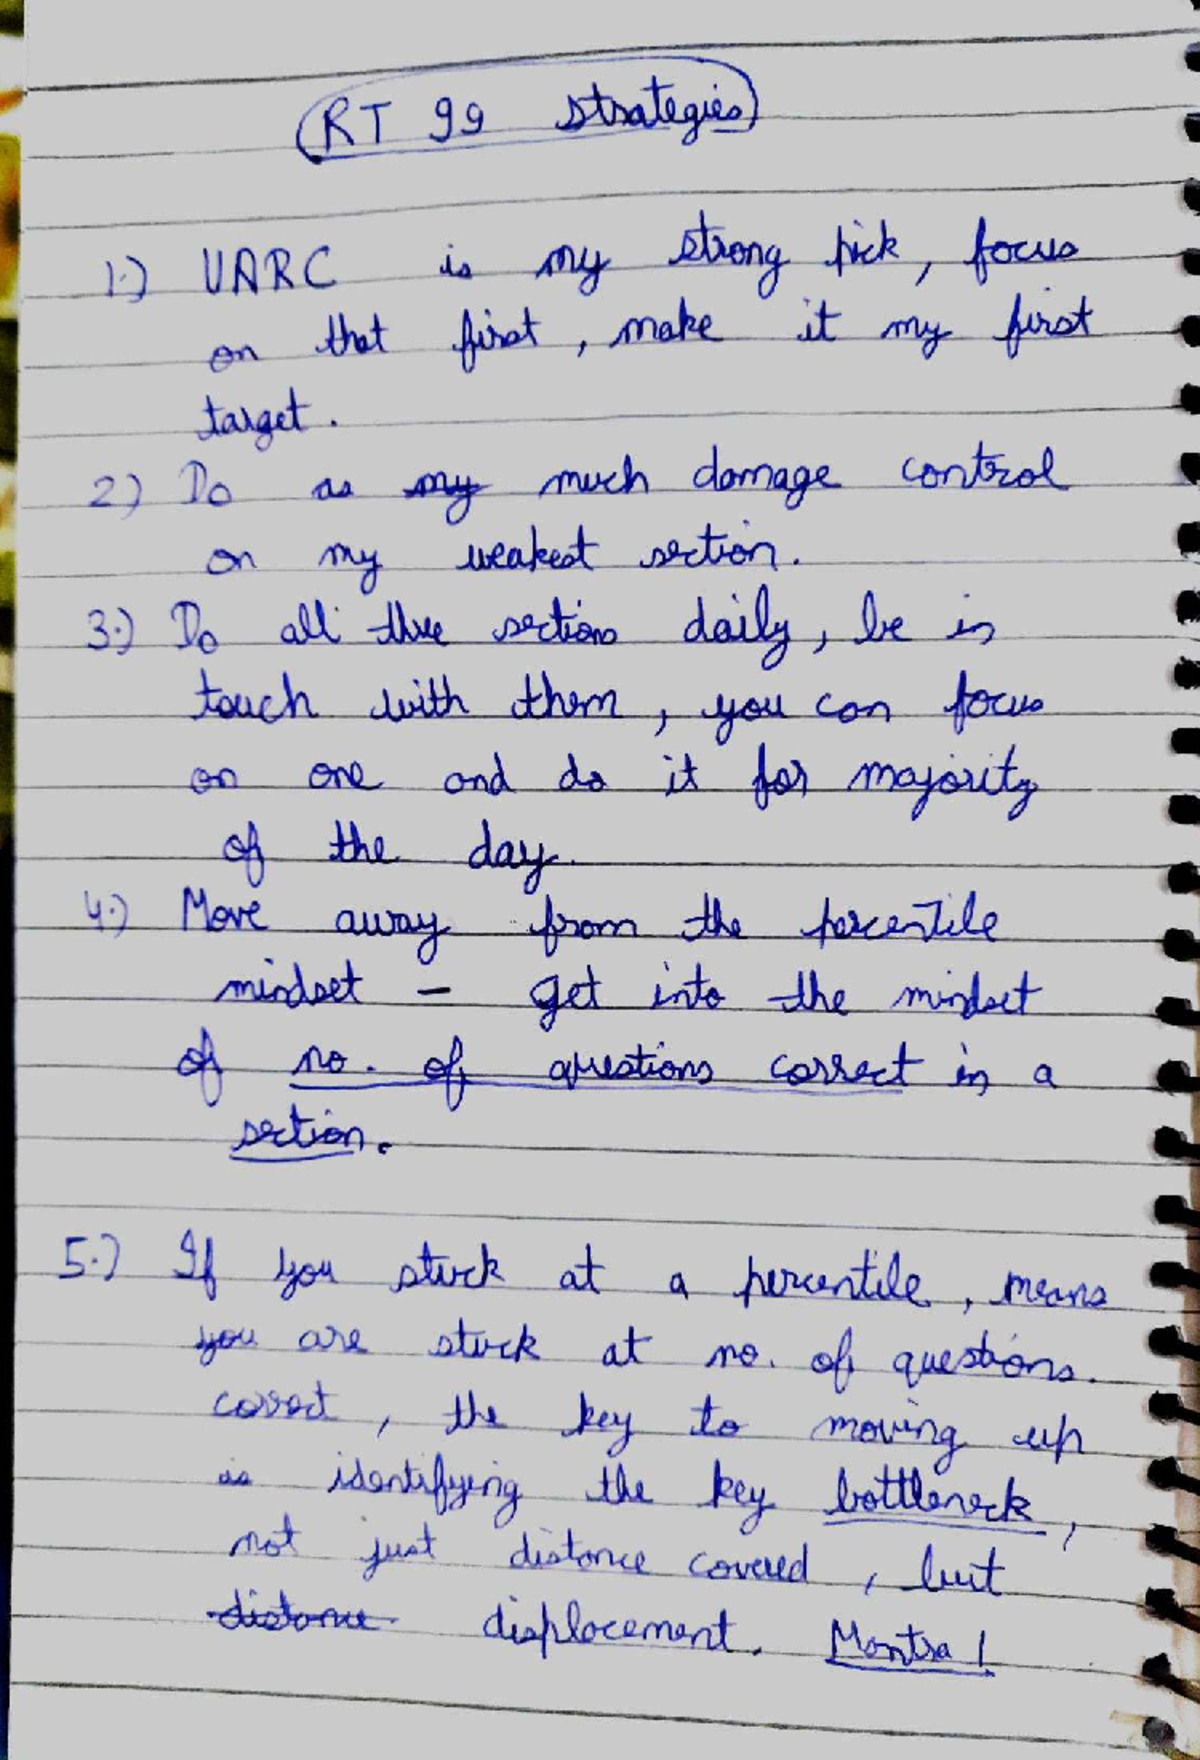 RT 99 Strategies
1.) VARC is my strong pick, focus
on that first, make it my first
target.
2) Do as my much damage control
on my weakest section.
3.) Do all three sections daily, be in
touch with them, you can focus
on one and do it for majority
of the day.
4.) Move away from the percentile
mindset - get into the mindset
of no. of questions correct in a
section.
5.) If you stuck at a percentile, means
you are stuck at no. of questions.
correct, the key to moving up
is identifying the key bottleneck,
not just distance covered, but
distance displacement. Mantra!